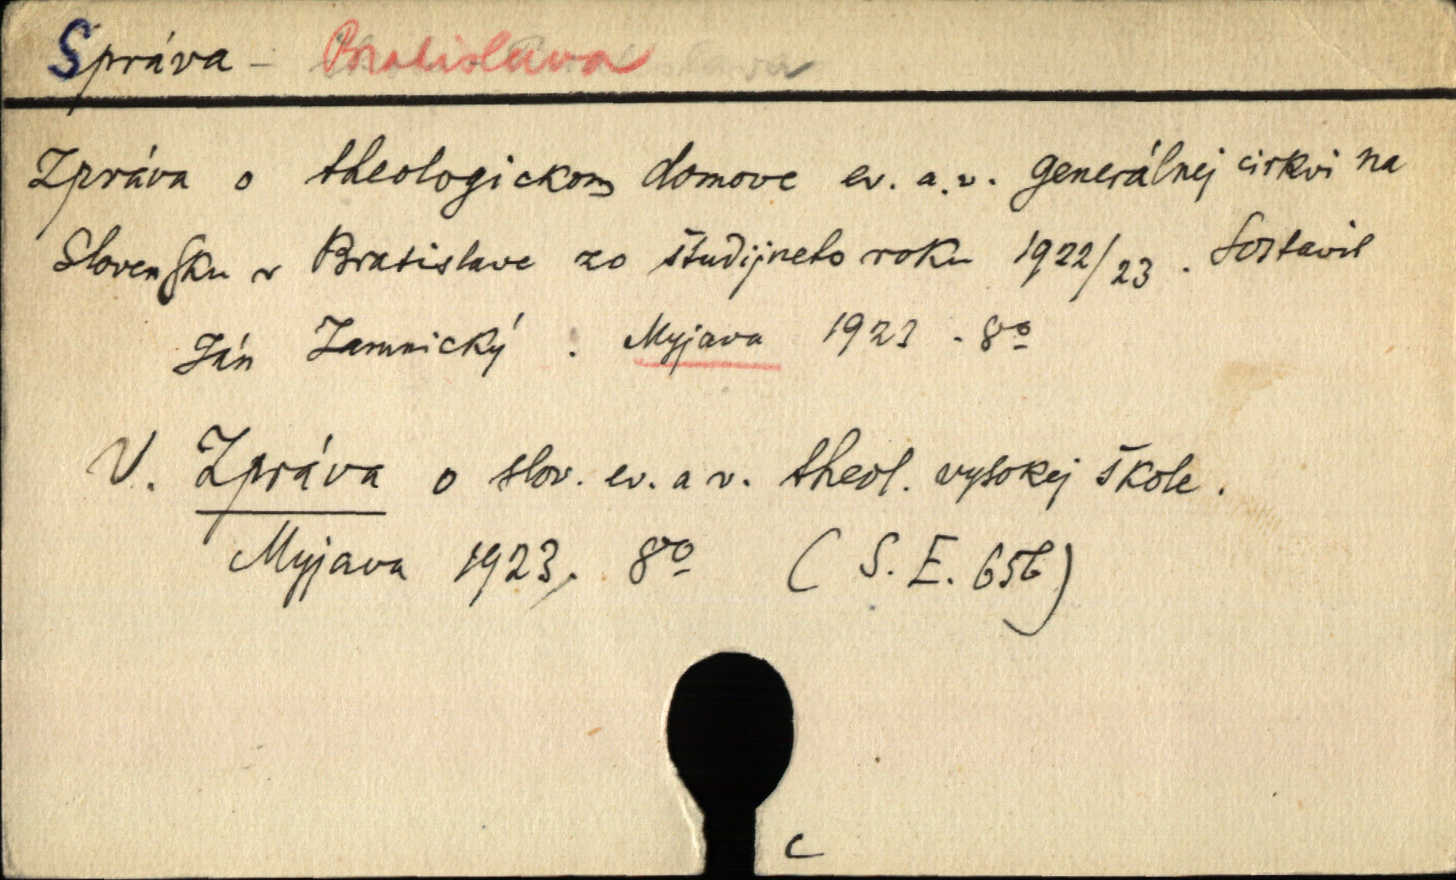 Správa - Bratislava
Zpráva o theologickom domove ev. a. v. generálnej cirkvi na
Slovensku v Bratislave zo študijneho roku 1922/23. Sostavil
Ján Jamnický. Myjava 1923. 8º
V. Zpráva o slov. ev. a v. theol. vysokej škole.
Myjava 1923, 8vo (S. E. 656)
c